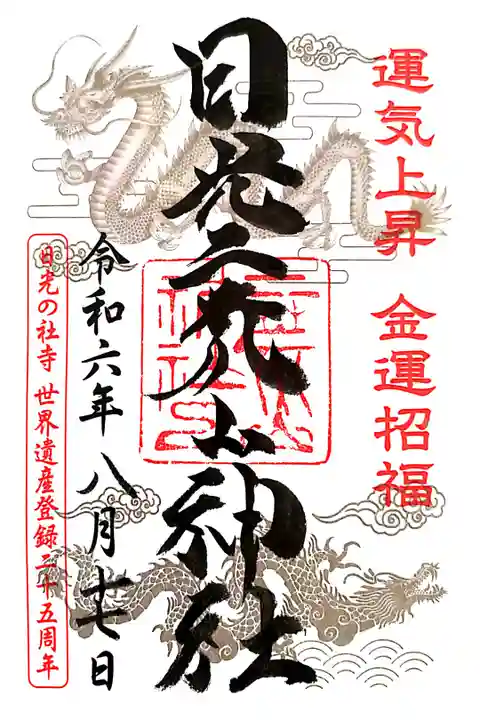 運気上昇 金運招福
日光二荒山神社
令和六年 八月十七日
日光の社寺 世界遺産登録二十五周年